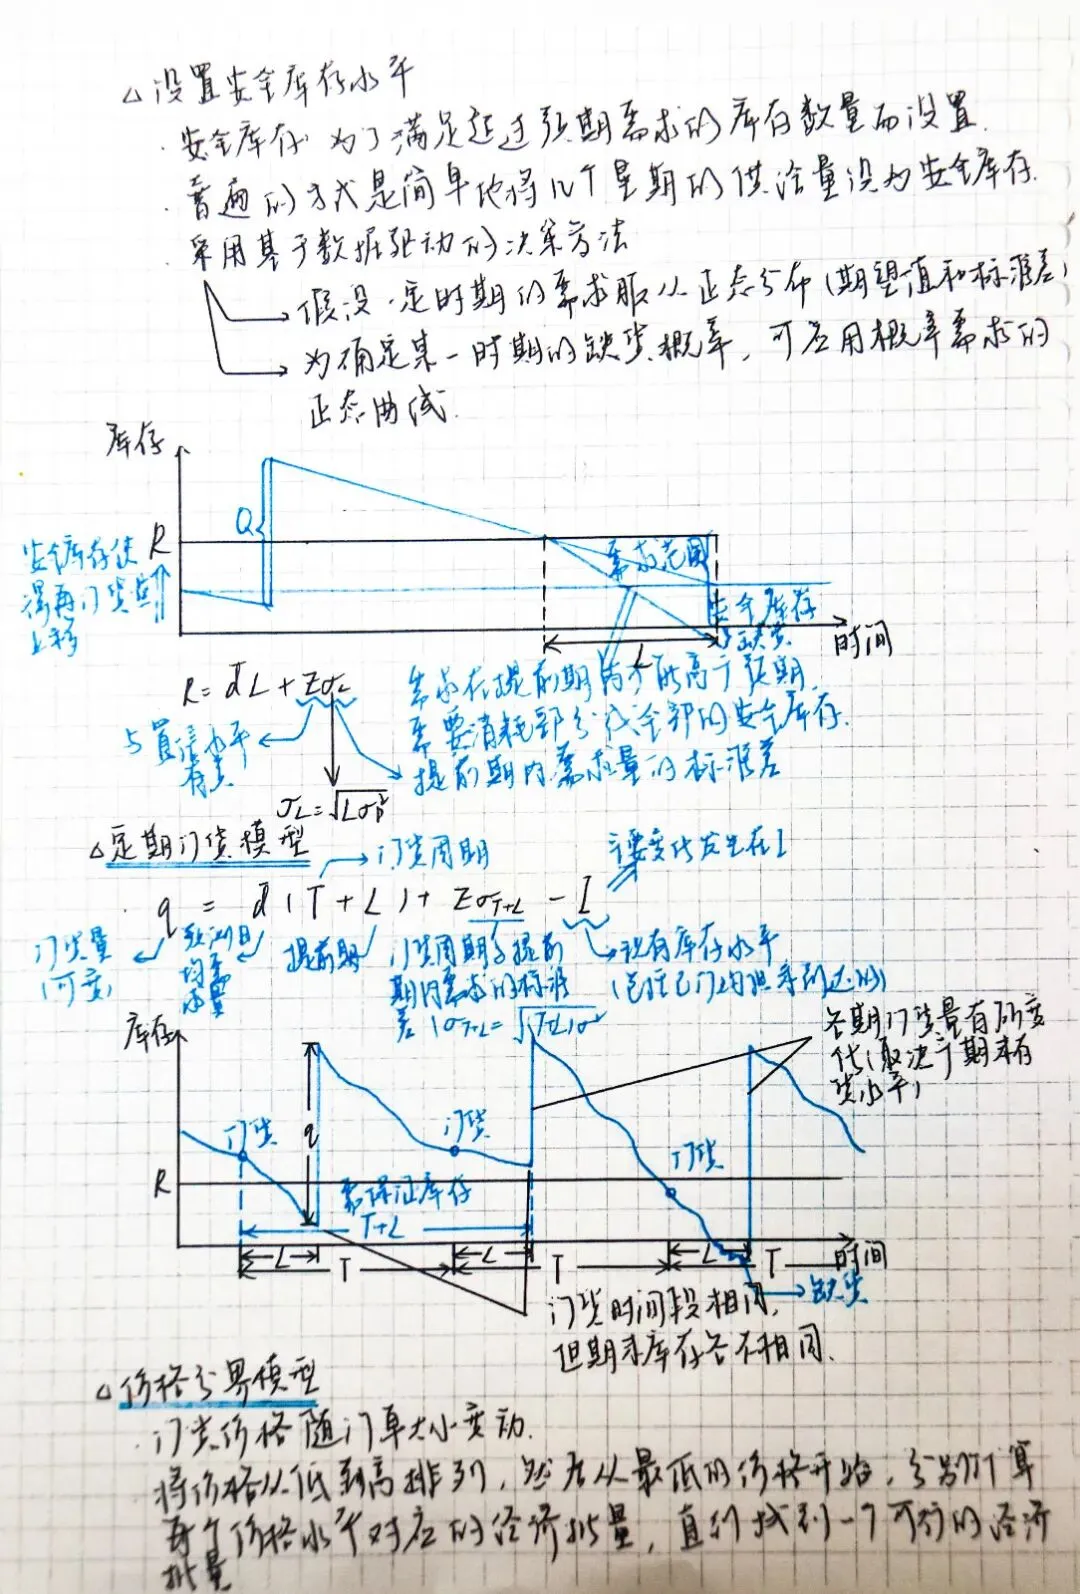 △设置安全库存水平
·安全库存 为了满足超过预期需求的库存数量而设置.
·普遍的方式是简单地将几个星期的供给量设为安全库存.
·采用基于数据驱动的决策方法
→假设一定时期的需求服从正态分布(期望值和标准差)
→为确定某一时期的缺货概率,可应用概率需求的
正态曲线.
库存
Q
R
安全库存使
得再订货点
上移
需求范围
安全库存
缺货
L
时间
R=d̄L+zσL
与置信水平
有关
需求在提前期内可能高于预期,
需要消耗部分或全部的安全库存.
提前期内需求量的标准差
σL=√LσD²
△定期订货模型
→订货周期
主要变化发生在I
·q = d̄(T+L)+zσT+L-I
订货量
(可变)
预测日
均需
求量
提前期
订货周期与提前
期内需求的标准
差(σT+L=√(T+L)σ²
→现有库存水平
(包括已订购但未到达的)
库存
各期订货量有所变
化(取决于期末存
货水平)
订货
订货
订货
q
R
需保证库存
T+L
L
L
L
T
T
T
时间
→缺货
订货时间段相同,
但期末库存各不相同.
△价格分界模型
·订货价格随订单大小变动.
·将价格从低到高排列,然后从最低的价格开始,分别计算
每个价格水平对应的经济批量,直到找到一个可行的经济
批量